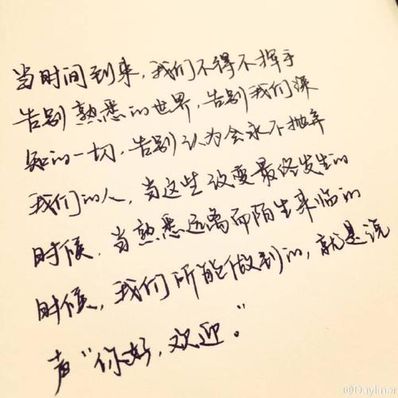 当时间到来,我们不得不挥手
告别熟悉的世界,告别我们深
知的一切,告别认为会永不抛弃
我们的人,当这些改变最终发生的
时候,当熟悉远离而陌生来临的
时候,我们所能做到的,就是说
声“你好,欢迎。”